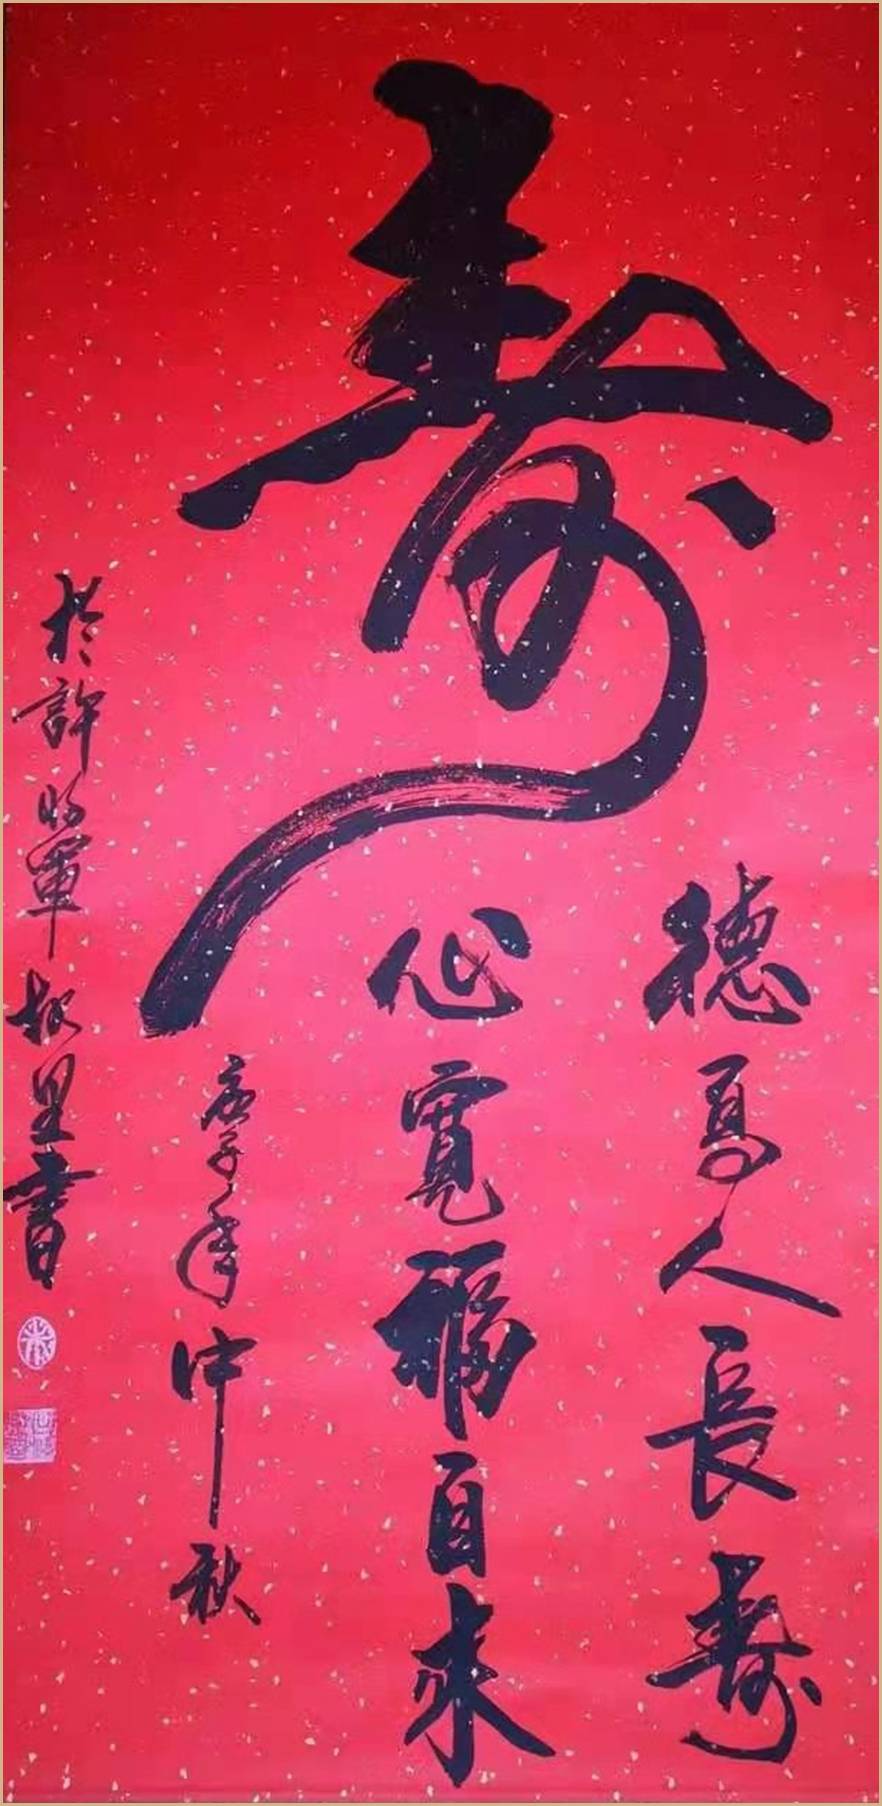 壽
德高人長壽
心寬福自來
庚子年中秋
於許將軍故里書